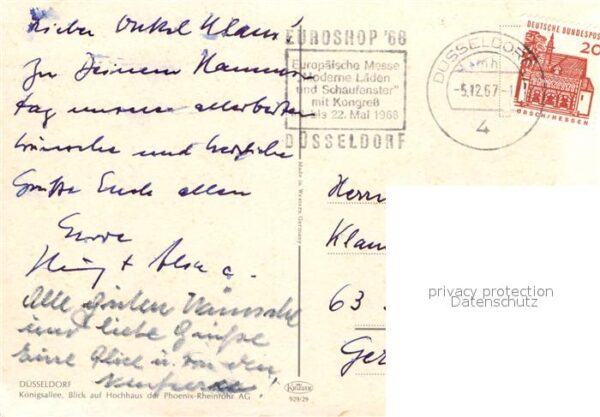 Lieber Onkel Klaus!
Zu Deinem Namens-
tag unsere allerbesten
Wünsche und herzliche
Grüße Euch allen
Eure
Alle guten Wünsche
und liebe Grüße
Eure Alice u. von den
DÜSSELDORF
Königsallee, Blick auf Hochhaus der Phoenix-Rheinrohr AG
EUROSHOP '68
Europäische Messe
"Moderne Läden
und Schaufenster"
mit Kongreß
bis 22. Mai 1968
DÜSSELDORF
DÜSSELDORF
-5.12.67-1
4
DEUTSCHE BUNDESPOST
20
LORSCH/HESSEN
Made in Western Germany
Krüger
929/29
Herrn
Klau
63
Ge
privacy protection
Datenschutz